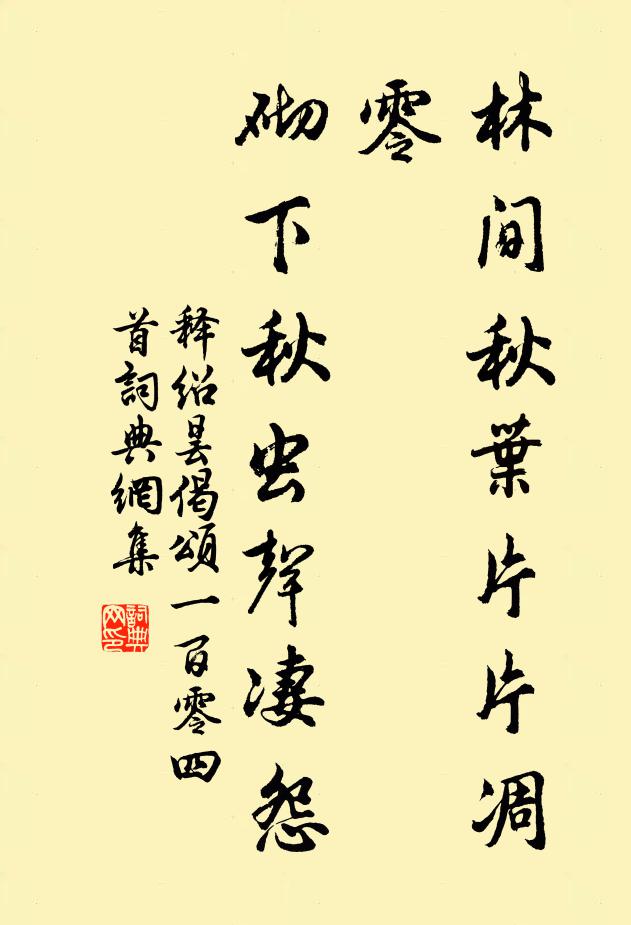 林间秋葉片片凋
零
砌下秋虫聲凄怨
释绍昙偈頌一百零四
首詞典網集
詞典
网印